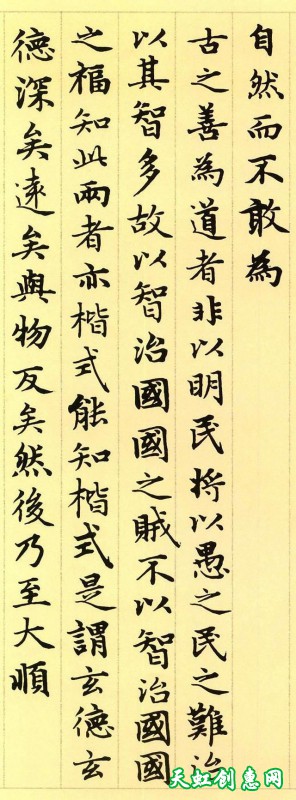 自然而不敢為
古之善為道者非以明民將以愚之民之難治
以其智多故以智治國國之賊不以智治國國
之福知此兩者亦楷式能知楷式是謂玄德玄
德深矣遠矣與物反矣然後乃至大順
天虹创惠网